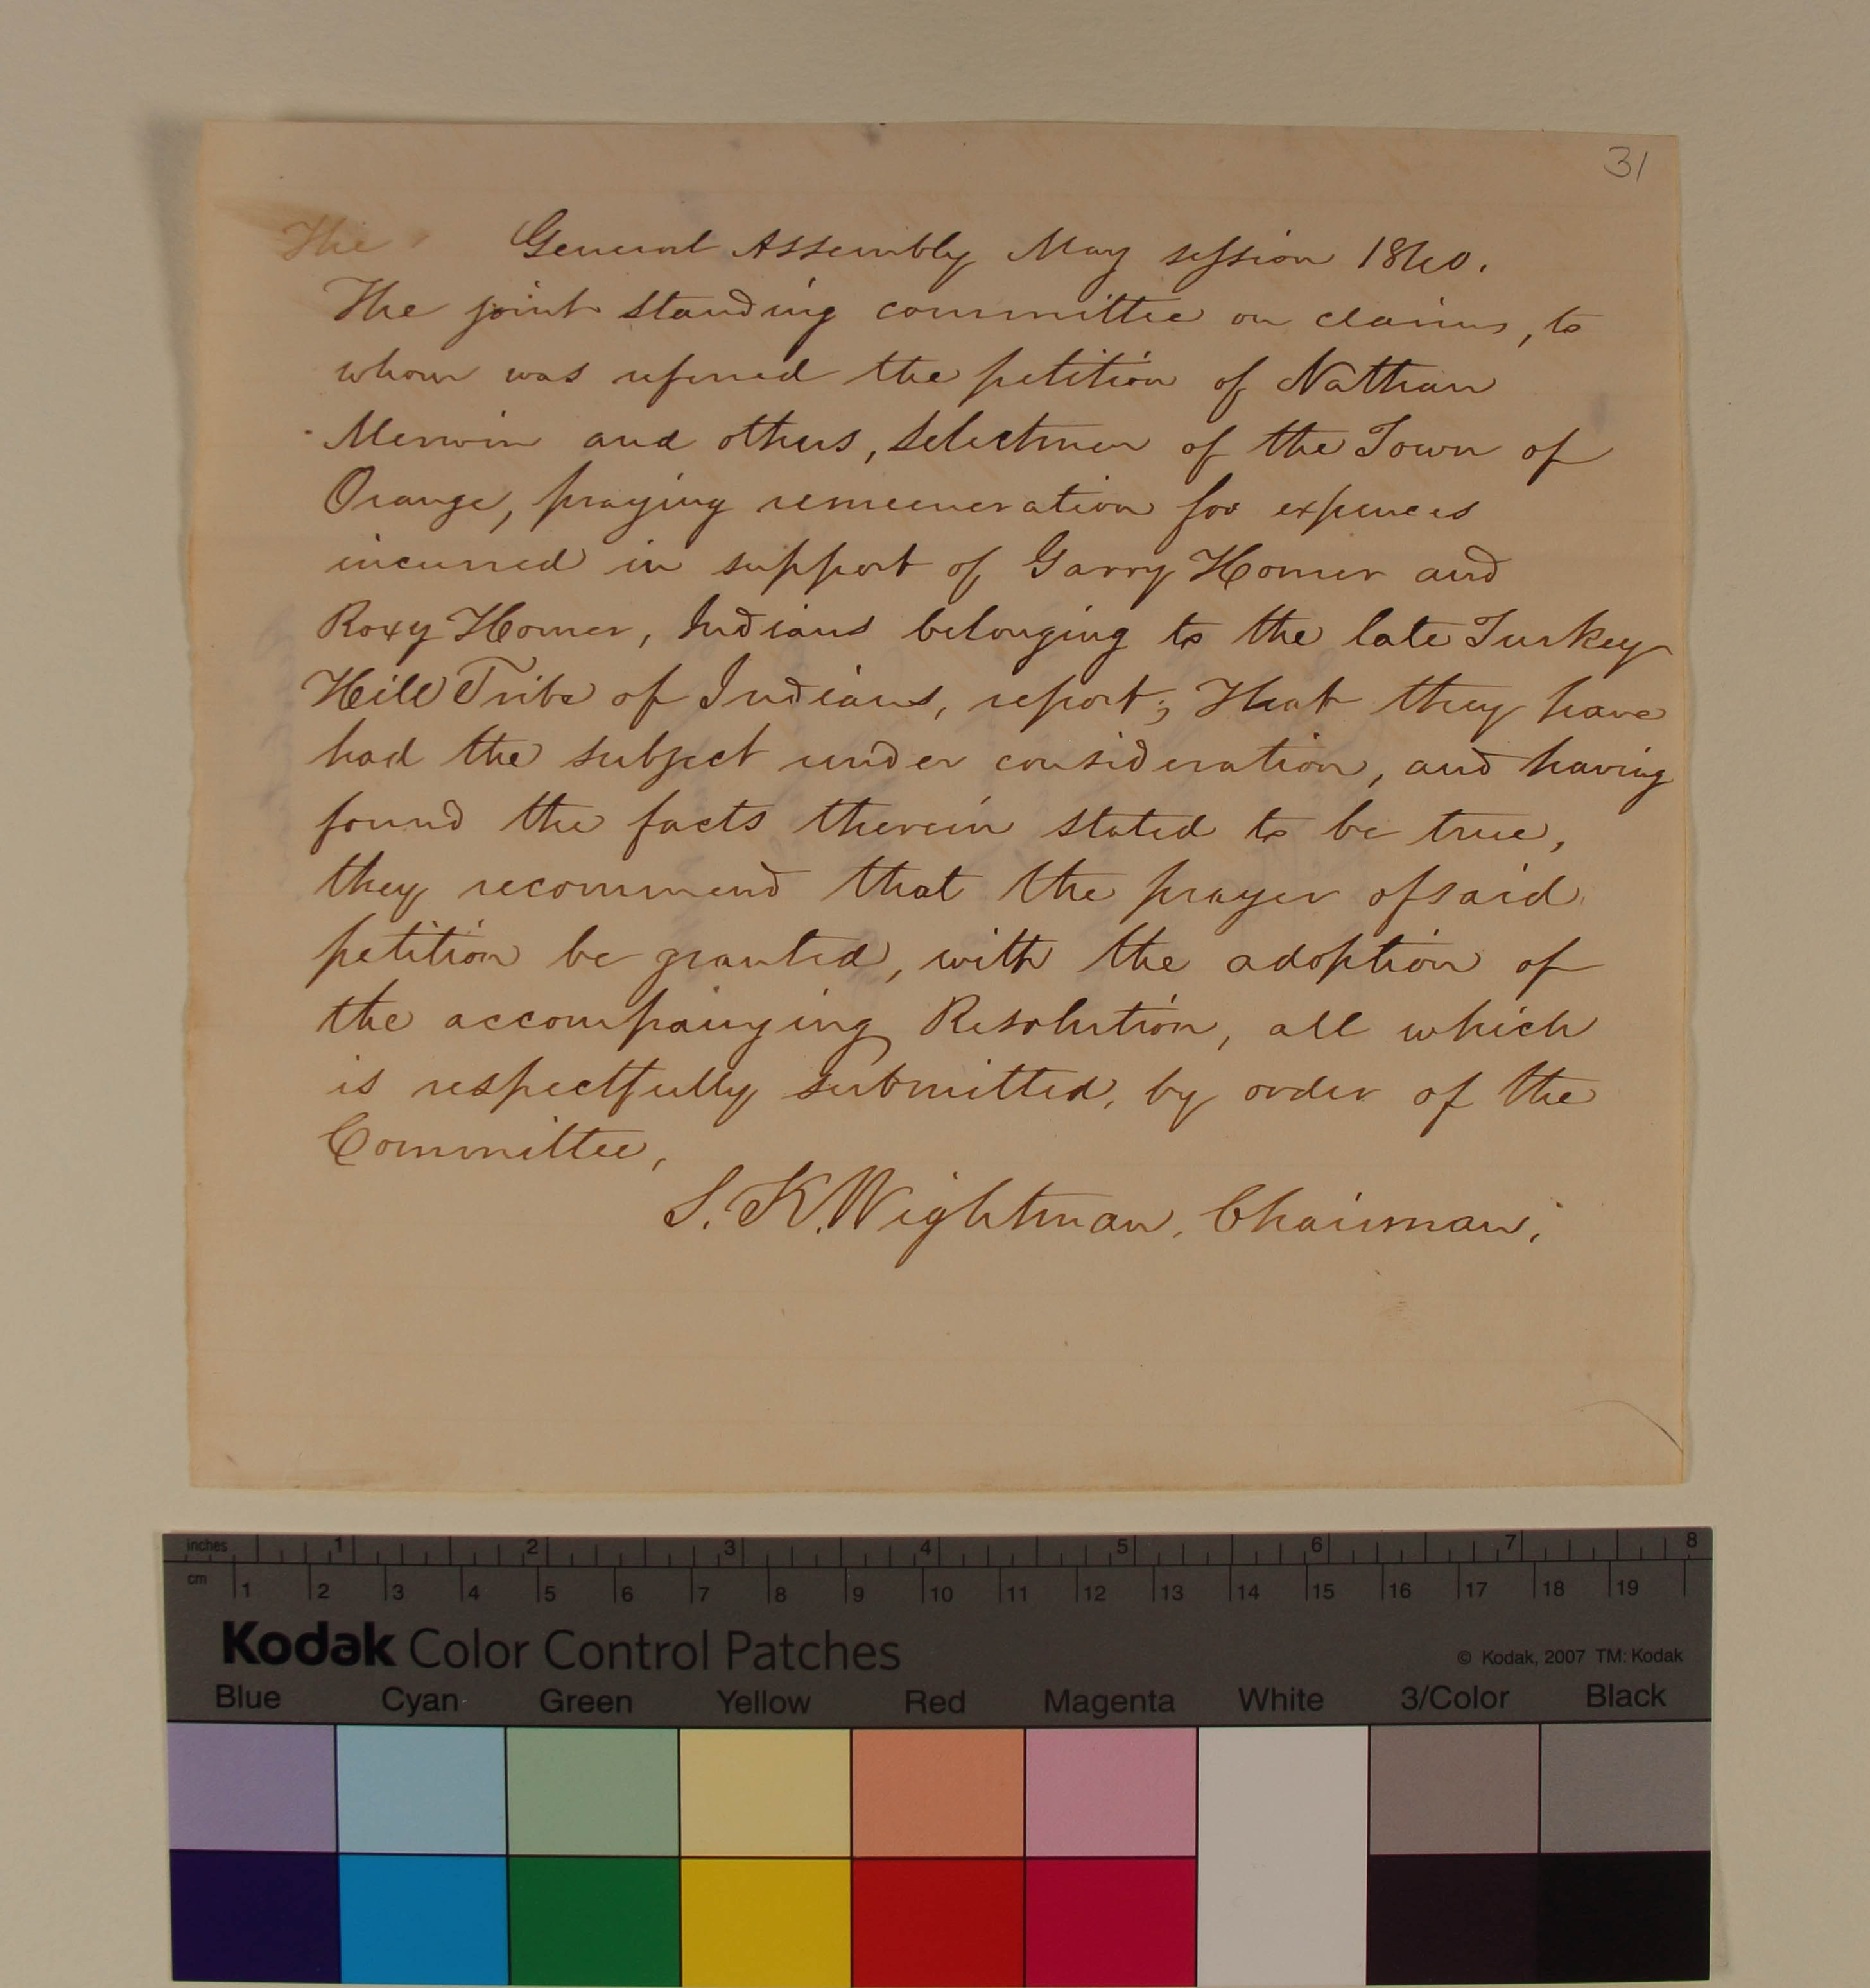 31
The General Assembly May session 1840.
The joint standing committee on claims, to
whom was refered the petition of Nathan
Merwin and others, Selectmen of the Town of
Orange, praying remeeneration for expences
incurred in support of Garry Homer and
Roxy Homer, Indians belonging to the late Turkey
Hill Tribe of Indians, report; That they have
had the subject under consideration, and having
found the facts therein stated to be true,
they recommend that the prayer of said
petition be granted, with the adoption of
the accompanying Resolution, all which
is respectfully submitted, by order of the
Committee,
S. K. Wightman, Chairman,
inches 1 2 3 4 5 6 7 8
cm 1 2 3 4 5 6 7 8 9 10 11 12 13 14 15 16 17 18 19
Kodak Color Control Patches
© Kodak, 2007 TM: Kodak
Blue Cyan Green Yellow Red Magenta White 3/Color Black